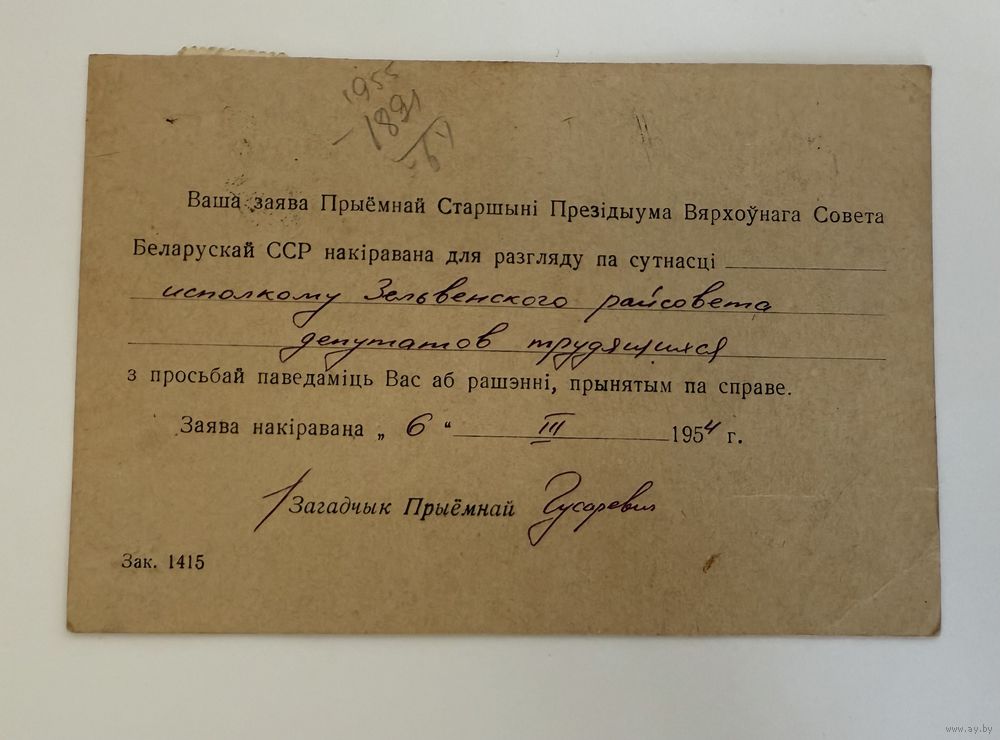 1955
- 1891
64
Ваша заява Прыёмнай Старшыні Презідыума Вярхоўнага Совета
Беларускай ССР накіравана для разгляду па сутнасці
исполкому Зельвенского райсовета
депутатов трудящихся
з просьбай паведаміць Вас аб рашэнні, прынятым па справе.
Заява накіравана „ 6 “ III 1954 г.
Загадчык Прыёмнай Гусаревич
Зак. 1415
www.ay.by